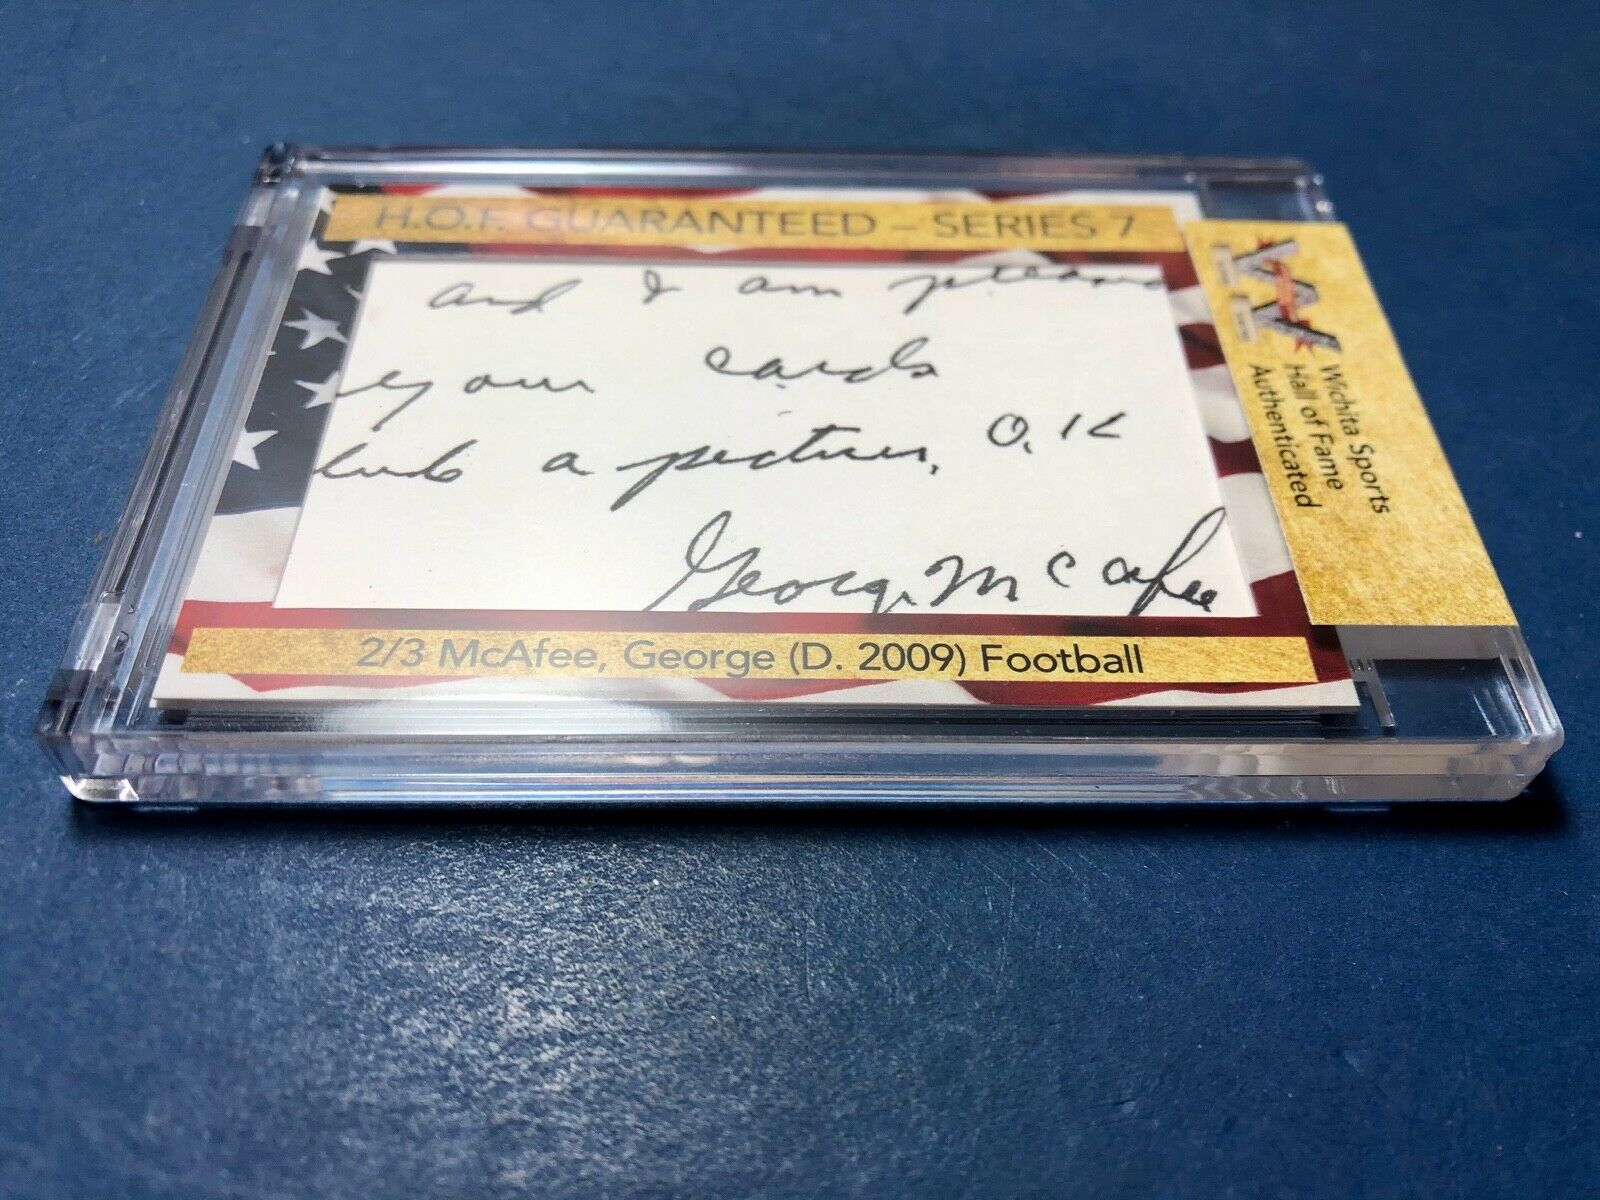 H.O.F. GUARANTEED – SERIES 7
and I am
your cards
a picture, O.K
George McAfee
2/3 McAfee, George (D. 2009) Football
Wichita Sports
Hall of Fame
Authenticated